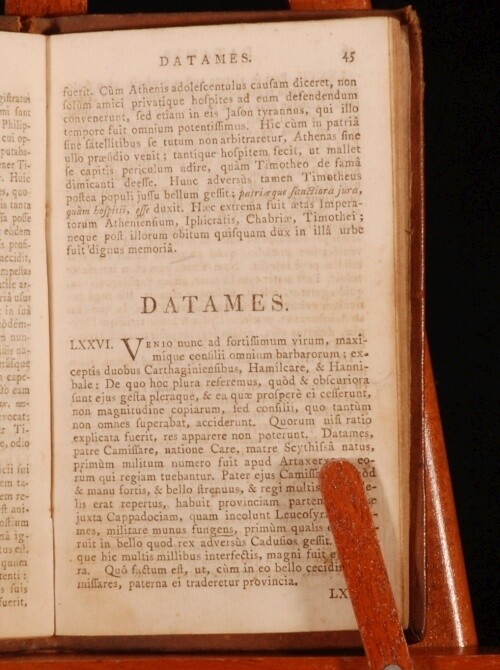 DATAMES. 45
fuerit. Cùm Athenis adolescentulus causam diceret, non
solùm amici privatique hospites ad eum defendendum
convenerunt, sed etiam in eis Jason tyrannus, qui illo
tempore fuit omnium potentissimus. Hic cùm in patriâ
sine satellitibus se tutum non arbitraretur, Athenas sine
ullo præsidio venit; tantique hospitem fecit, ut mallet
se capitis periculum adire, quàm Timotheo de famâ
dimicanti deesse. Hunc adversùs tamen Timotheus
postea populi jussu bellum gessit; patriæque sanctiora jura,
quàm hospitii, esse duxit. Hæc extrema fuit ætas Impera-
torum Atheniensium, Iphicratis, Chabriæ, Timothei;
neque post illorum obitum quisquam dux in illâ urbe
fuit dignus memoriâ.
DATAMES.
LXXVI. VENIO nunc ad fortissimum virum, maxi-
mique consilii omnium barbarorum; ex-
ceptis duobus Carthaginiensibus, Hamilcare, & Hanni-
bale: De quo hoc plura referemus, quòd & obscuriora
sunt ejus gesta pleraque, & ea quæ prosperè ei cesserunt,
non magnitudine copiarum, sed consilii, quo tantùm
non omnes superabat, acciderunt. Quorum nisi ratio
explicata fuerit, res apparere non poterunt. Datames,
patre Camissare, natione Care, matre Scythissâ natus,
primùm militum numero fuit apud Artaxer eo-
rum qui regiam tuebantur. Pater ejus Camiss òd
& manu fortis, & bello strenuus, & regi multis
lis erat repertus, habuit provinciam partem
juxta Cappadociam, quam incolunt Leucosyr
mes, militare munus fungens, primùm qualis
ruit in bello quod rex adversùs Cadusios gessit.
que hic multis millibus interfectis, magni fuit
ra. Quò factum est, ut, cùm in eo bello cecidi
missares, paterna ei traderetur provincia.
LX
gistratus
mi sunt
Philip-
cui op-
putaba-
ener Ti-
Huic
es, quo-
is tanta
sa posse
eòdem
s prof-
accidit,
mpestas
tile ar-
riâ usus
t in suâ
òdem-
n nun-
na-
rásque
cape-
eam
vocat:
Ti-
e, odio
cii sui
em ta-
em re-
est ani-
ostium
nâ ig-
tus est.
quam
tenti:
s suis
fuerit,